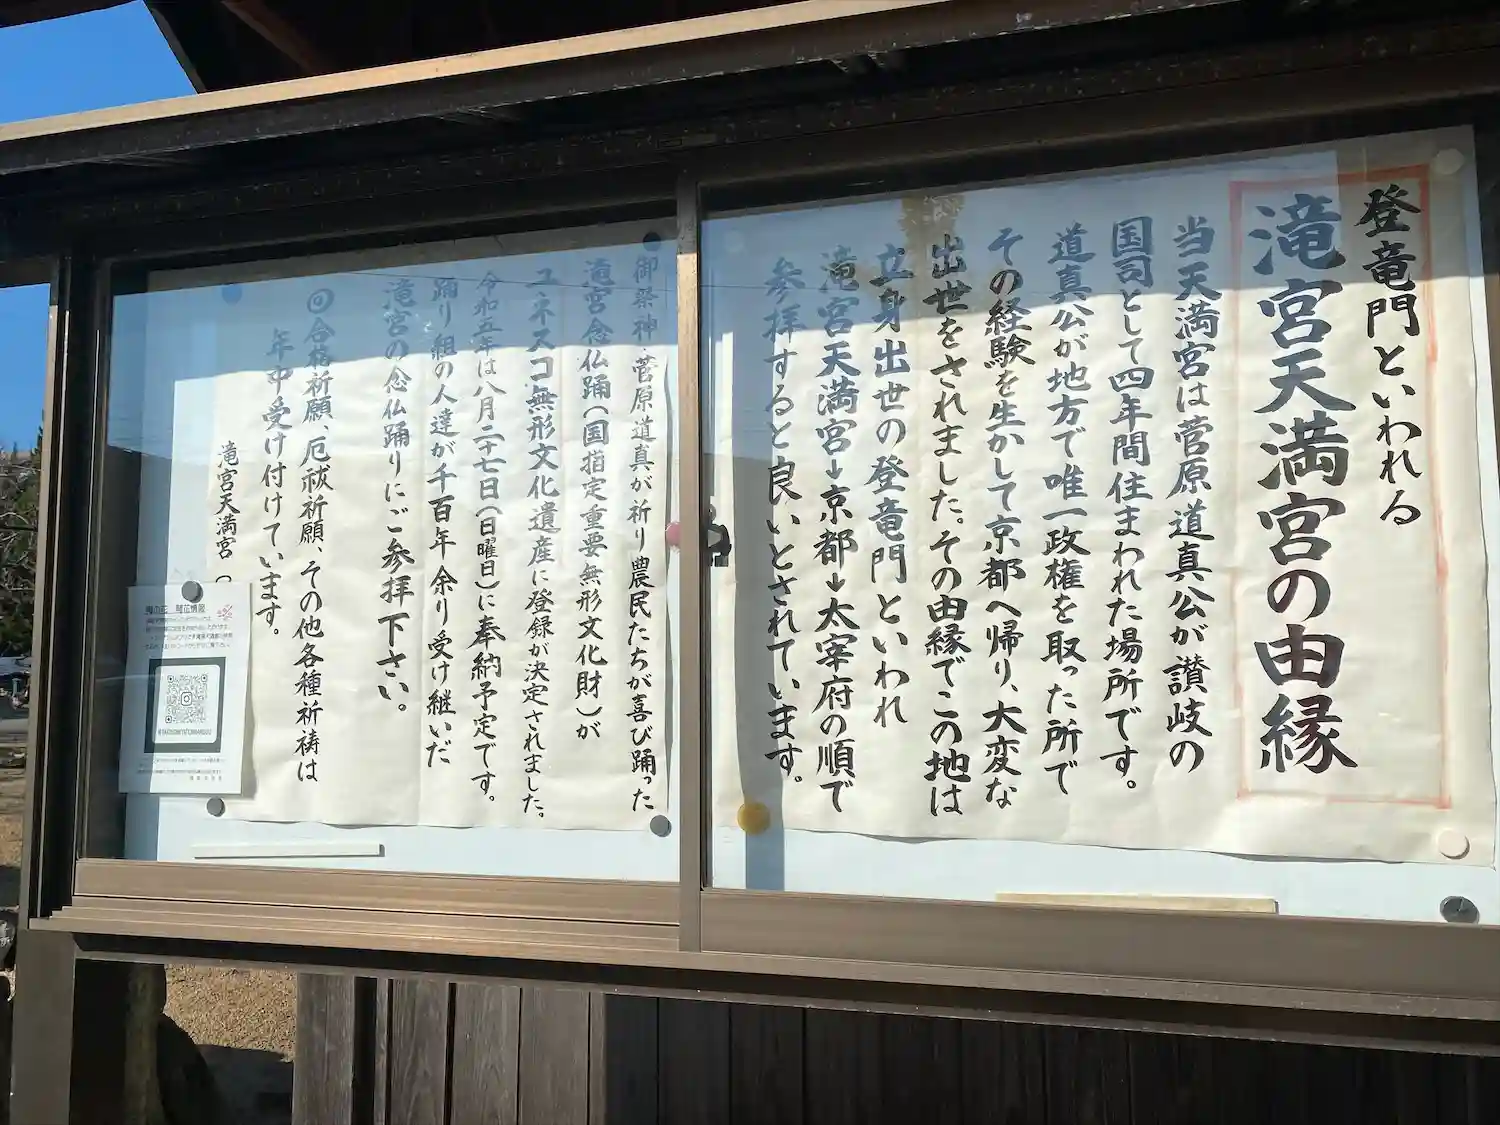 登竜門といわれる
滝宮天満宮の由縁
当天満宮は菅原道真公が讃岐の
国司として四年間住まわれた場所です。
道真公が地方で唯一政権を取った所で
その経験を生かして京都へ帰り、大変な
出世をされました。その由縁でこの地は
立身出世の登竜門といわれ
滝宮天満宮↓京都↓太宰府の順で
参拝すると良いとされています。
御祭神・菅原道真が祈り農民たちが喜び踊った
滝宮念仏踊(国指定重要無形文化財)が
ユネスコ無形文化遺産に登録が決定されました。
令和五年は八月二十七日(日曜日)に奉納予定です。
踊り組の人達が千百年余り受け継いだ
滝宮の念仏踊りにご参拝下さい。
◎合格祈願、厄祓祈願、その他各種祈祷は
年中受け付けています。
滝宮天満宮